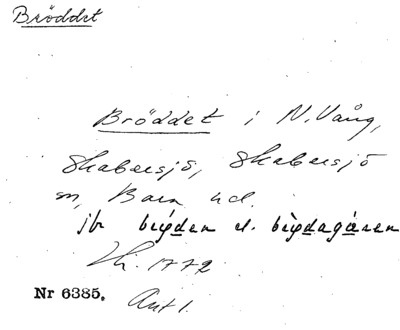 Bröddet
Bröddet i N. Vång,
Skabersjö, Skabersjö
sn, Bara hd.
jb bryden el. brydagären
Hi. 1772
Nr 6385. Akt 1.